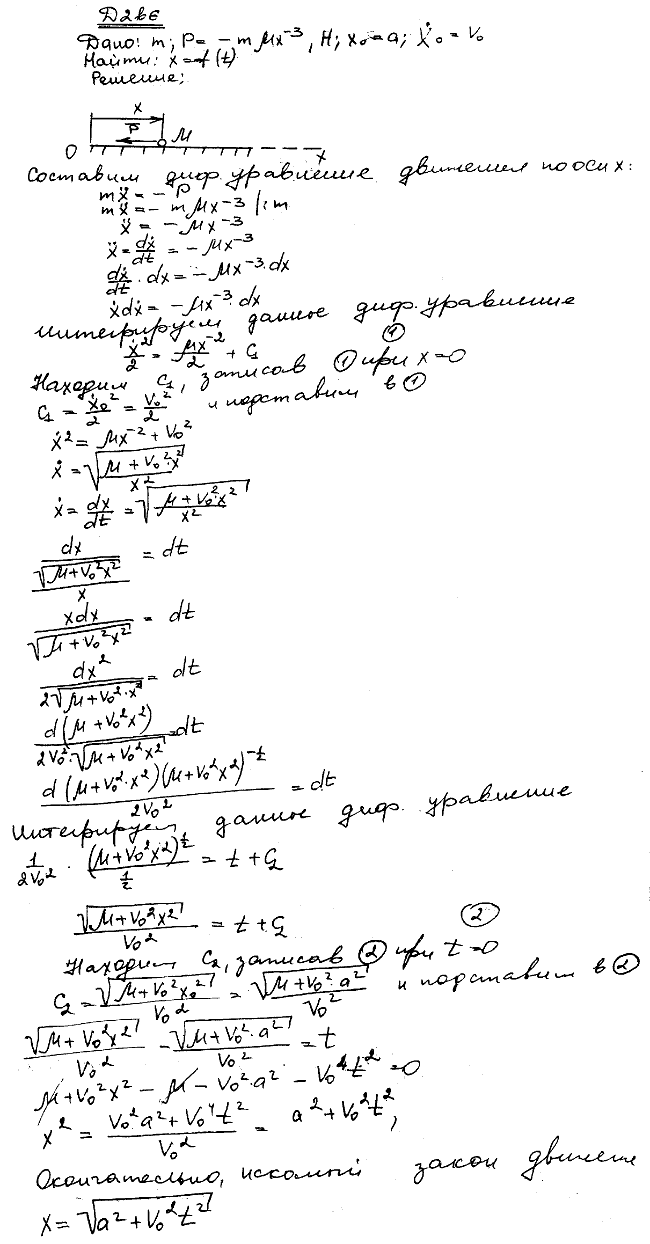 Д2 В6
Дано: m; P = - m μx⁻³, H; x₀ = a; ẋ₀ = V₀
Найти: x = f (t)
Решение:
x
P̅ M
O x
Составим диф. уравнение движения по оси x:
mẍ = - P
mẍ = - m μx⁻³ |: m
ẍ = - μx⁻³
ẍ = dẋ/dt = - μx⁻³
dẋ/dt · dx = - μx⁻³ · dx
ẋdẋ = - μx⁻³ · dx
Интегрируем данное диф. уравнение
ẋ²/2 = μx⁻²/2 + C₁ ①
Находим C₁, записав ① при x = 0
C₁ = ẋ₀²/2 = V₀²/2 и подставим в ①
ẋ² = μx⁻² + V₀²
ẋ = √((μ + V₀² · x²)/x²)
ẋ = dx/dt = √((μ + V₀² · x²)/x²)
dx/(√(μ + V₀²x²)/x) = dt
xdx/√(μ + V₀²x²) = dt
dx²/(2√(μ + V₀² · x²)) = dt
d(μ + V₀²x²)/(2V₀² · √(μ + V₀²x²)) = dt
d(μ + V₀² · x²)(μ + V₀²x²)^(-1/2)/(2V₀²) = dt
Интегрируем данное диф. уравнение
1/(2V₀²) · (μ + V₀²x²)^(1/2)/(1/2) = t + C₂
√(μ + V₀²x²)/V₀² = t + C₂ ②
Находим C₂, записав ② при t = 0
C₂ = √(μ + V₀²x₀²)/V₀² = √(μ + V₀² · a²)/V₀² и подставим в ②
√(μ + V₀²x²)/V₀² - √(μ + V₀² · a²)/V₀² = t
μ + V₀²x² - μ - V₀² · a² - V₀⁴t² = 0
x² = (V₀²a² + V₀⁴t²)/V₀² = a² + V₀²t²,
Окончательно, искомый закон движения
x = √(a² + V₀²t²)